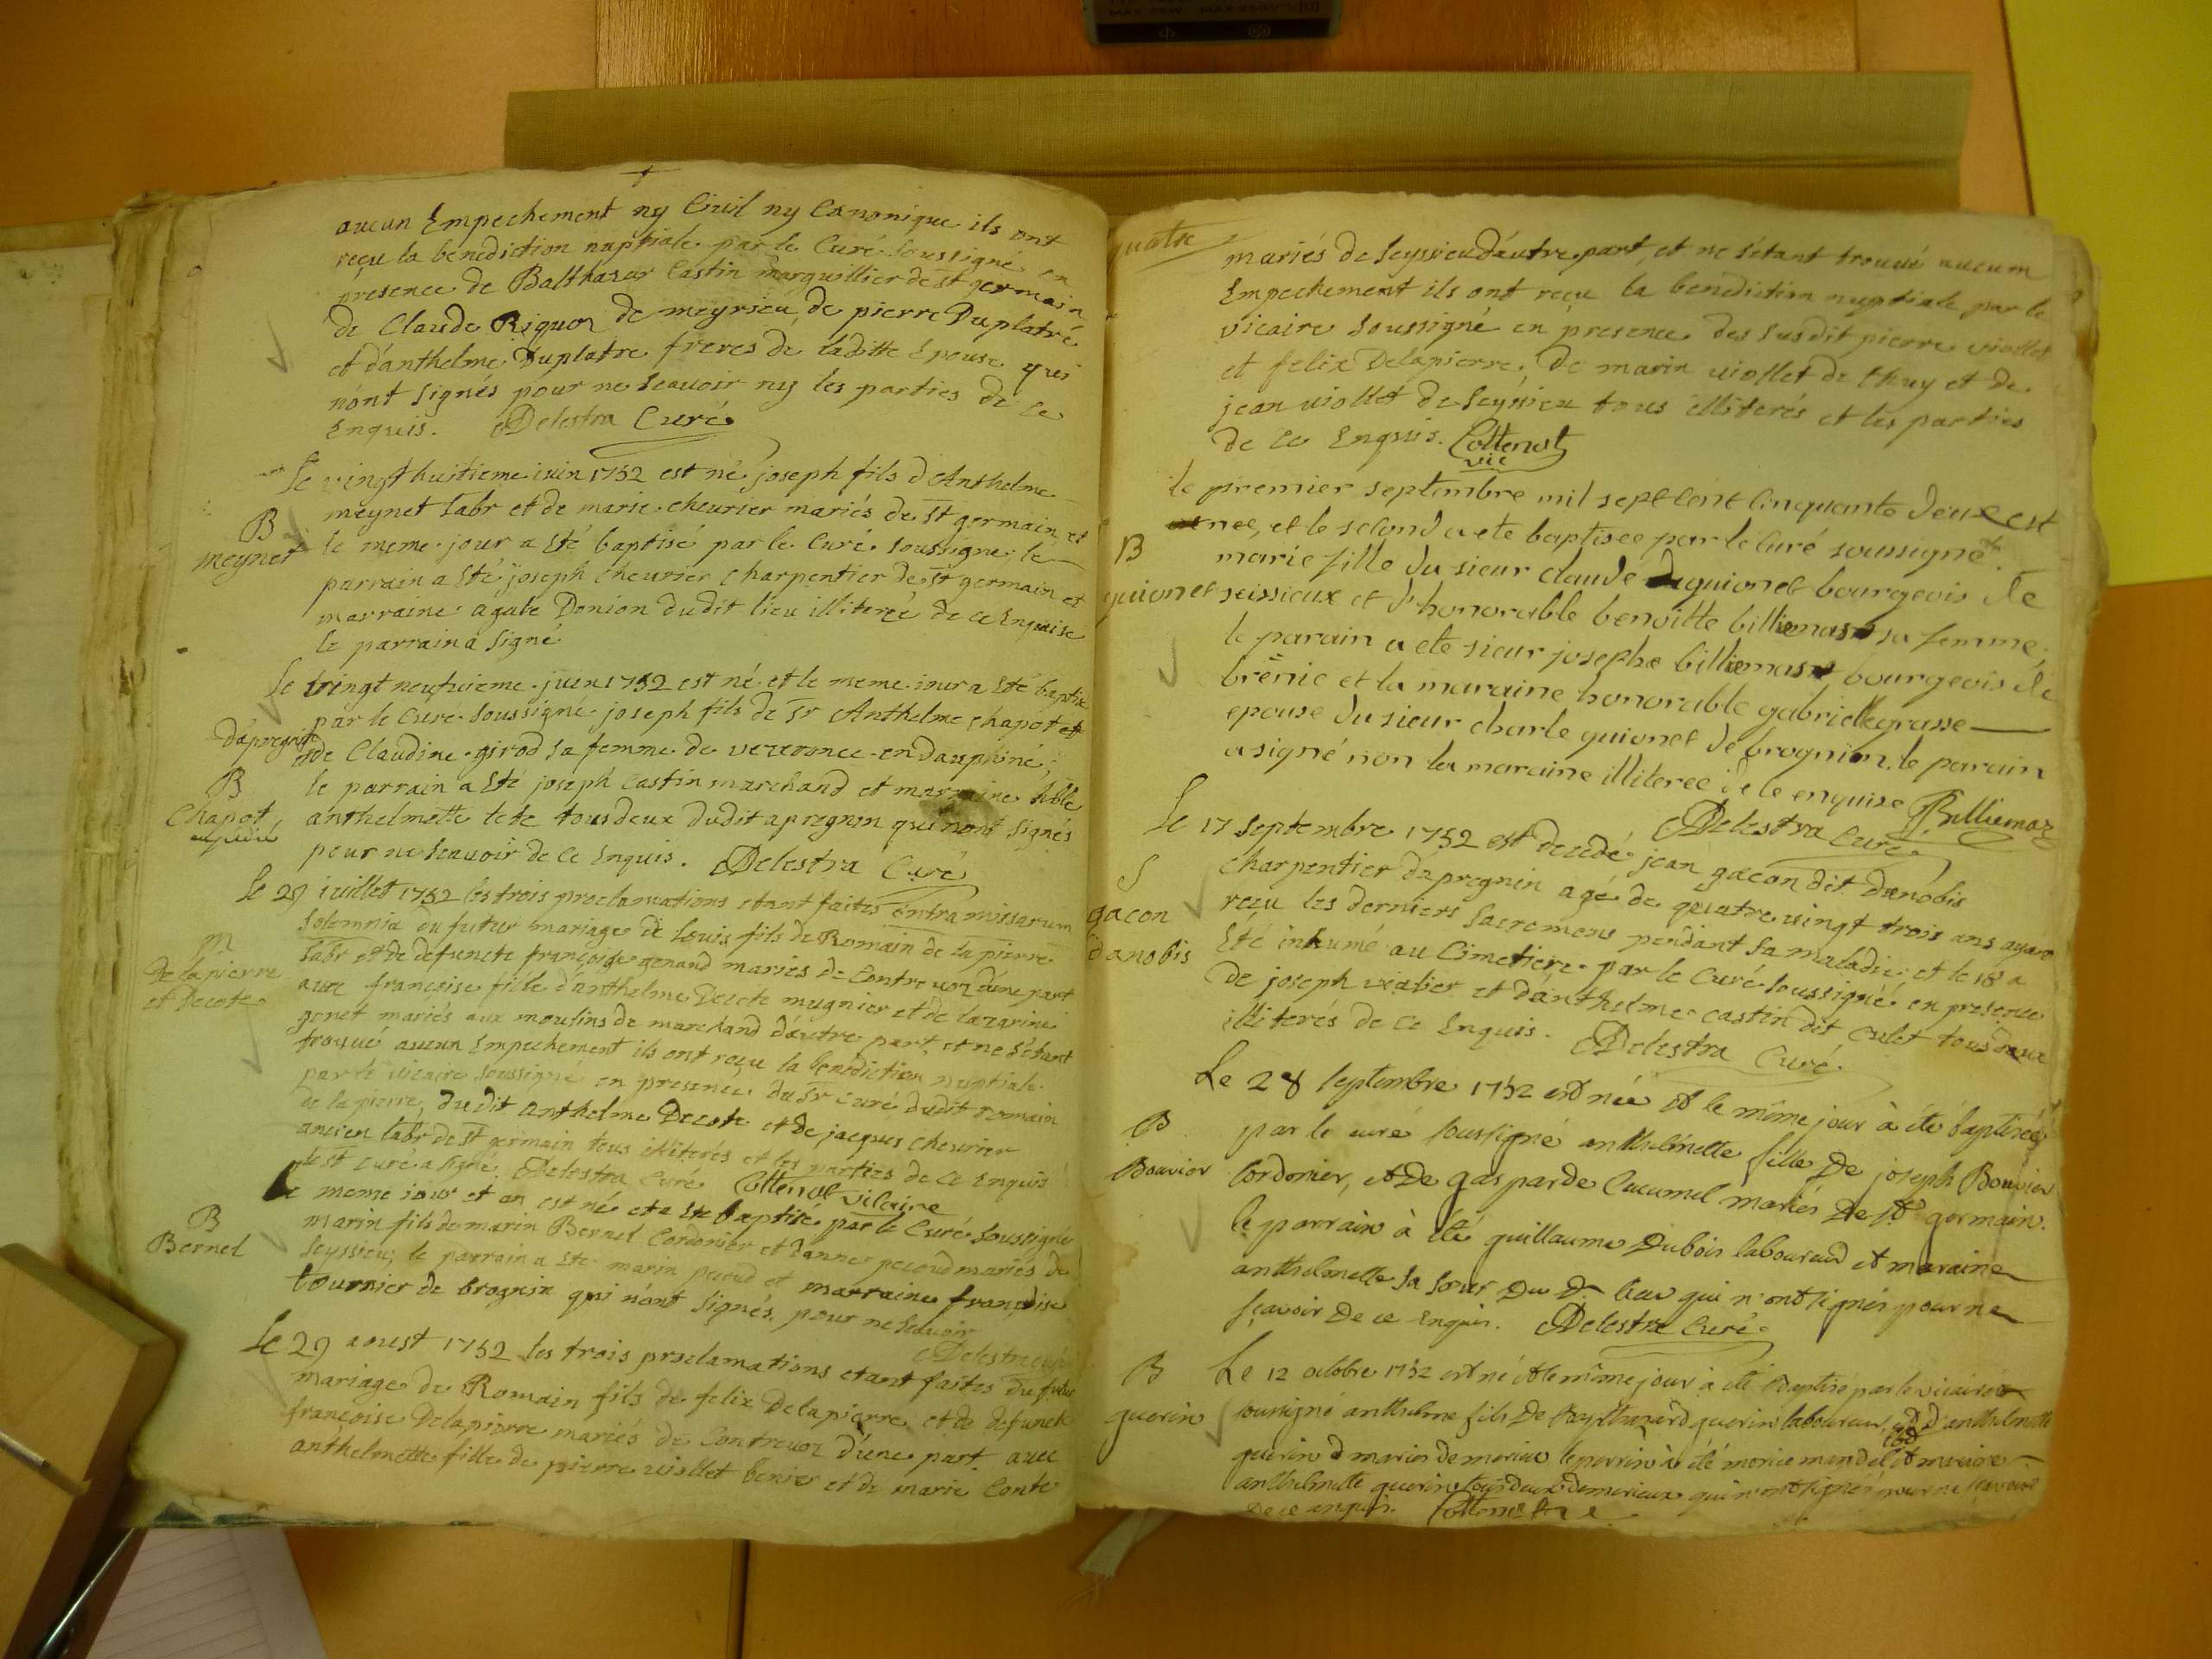 aucun Empechement ny Civil ny Canonique ils ont
reçu la benediction nuptiale par le Curé soussigné en
presence de Balthazar Castin marguillier de st germain
de Claude Riquoz de meyrieu, de pierre Duplatre
et d'anthelme Duplatre freres de laditte Epouse qui
n'ont signés pour ne scavoir ny les parties de ce
Enquis. Delestra Curé
Le vingt huitieme iuin 1752 est né joseph fils d'Anthelme
meynet labr et de marie cheurier mariés de st germain et
B
meynet
le meme jour a Eté baptisé par le Curé soussigné le
parrain a Eté joseph cheurier charpentier de st germain et
marraine agate Donion dudit lieu illiterée de ce Enquise
le parrain a signé
Le vingt neufvieme juin 1752 est né et le meme iour a Eté baptisé
par le Curé soussigné joseph fils de Sr Anthelme chapot et
d'apregnin
de Claudine girod sa femme de vezeronce en dauphiné,
B
Chapot
le parrain a Eté joseph Castin marchand et marraine
anthelmette tete tous deux dudit apregnin qui n'ont signés
pour ne scavoir de ce Enquis. Delestra Curé
Le 29 iuillet 1752 les trois proclamations etant faites intra missarum
solemnia du futur mariage de Louis fils de Romain de la pierre
M
De lapierre
et Decote
labr et de defuncte françoise genand mariés de Contrevoz d'une part
avec françoise fille d'anthelme Decote mugnier et de lazarine
genet mariés aux moulins de marchand d'autre part, et ne s'etant
trouvé aucun Empechement ils ont reçu la benediction nuptiale
par le vicaire soussigné en presence du Sr Curé dudit Romain
de la pierre, dudit Anthelme Decote et de jacques cheurier
ancien labr de st germain tous illiterés et les parties de ce Enquis
le Sr Curé a signé. Delestra Curé Collenot vicaire
Le meme iour et an est né et a Eté baptisé par le Curé soussigné
B
Bernel
marin fils de marin Bernel Cordonier et d'anne pecoud mariés de
seyssieu; le parrain a Eté marin pecoud et marraine françoise
tournier de brognin qui n'ont signés pour ne scavoir
Delestra curé
Le 29 aoust 1752 les trois proclamations etant faites du futur
mariage de Romain fils de felix Delapierre et de defuncte
françoise Delapierre mariés de Contrevoz d'une part avec
anthelmette fille de pierre viollet benier et de marie Conte
quatre
mariés de seyssieu d'autre part, et ne s'etant trouvé aucun
Empechement ils ont reçu la benediction nuptiale par le
vicaire soussigné en presence des susdit pierre viollet
et felix Delapierre, de marin viollet de thuy et de
jean viollet de seyssieu tous illiterés et les parties
de ce Enquis. Collenot
vic
le premier septembre mil sept cent cinquante deux est
nee, et le second a ete baptisee par le curé soussigné
B
guionet
marie fille du sieur claude guionet bourgeois de
seissieux et d'honorable benoitte billiemas sa femme;
le parain a ete sieur josephe billiemas bourgeois de
brenie et la maraine honorable gabriellegrasse
epouse du sieur charle guionet de brognion. le parain
a signé non la maraine illiteree de ce enquise Billiemaz
Delestra Curé
Le 17 septembre 1752 est decedé jean gacon dit danobis
S
gacon
danobis
charpentier d'apregnin agé de quatre vingt trois ans ayant
reçu les derniers sacremens pendant sa maladie; et le 18 a
Eté inhumé au Cimetiere par le Curé soussigné en presence
de joseph vialier et d'anthelme castin dit culet tous deux
illiterés de ce Enquis. Delestra Curé
Le 28 septembre 1752 est née et le même jour à été baptisée
B
Bouvier
par le curé soussigné anthelmette fille de joseph Bouvier
Cordonier, et de gasparde Cucumel mariés de st germain.
le parrain à été guillaume Dubois laboureur et maraine
anthelmette sa sœur du dt lieu qui n'ont signés pour ne
sçavoir de ce enquis. Delestra Curé
B
guerin
Le 12 octobre 1752 est né et le même jour à été Baptisé par le vicaire
soussigné anthelme fils de guerin laboureur, et d'anthelmette
guerin mariés de merieu le parrin à été et maraine
anthelmette guerin tous deux de merieux qui n'ont signés pour ne sçavoir
de ce enquis. Collenot